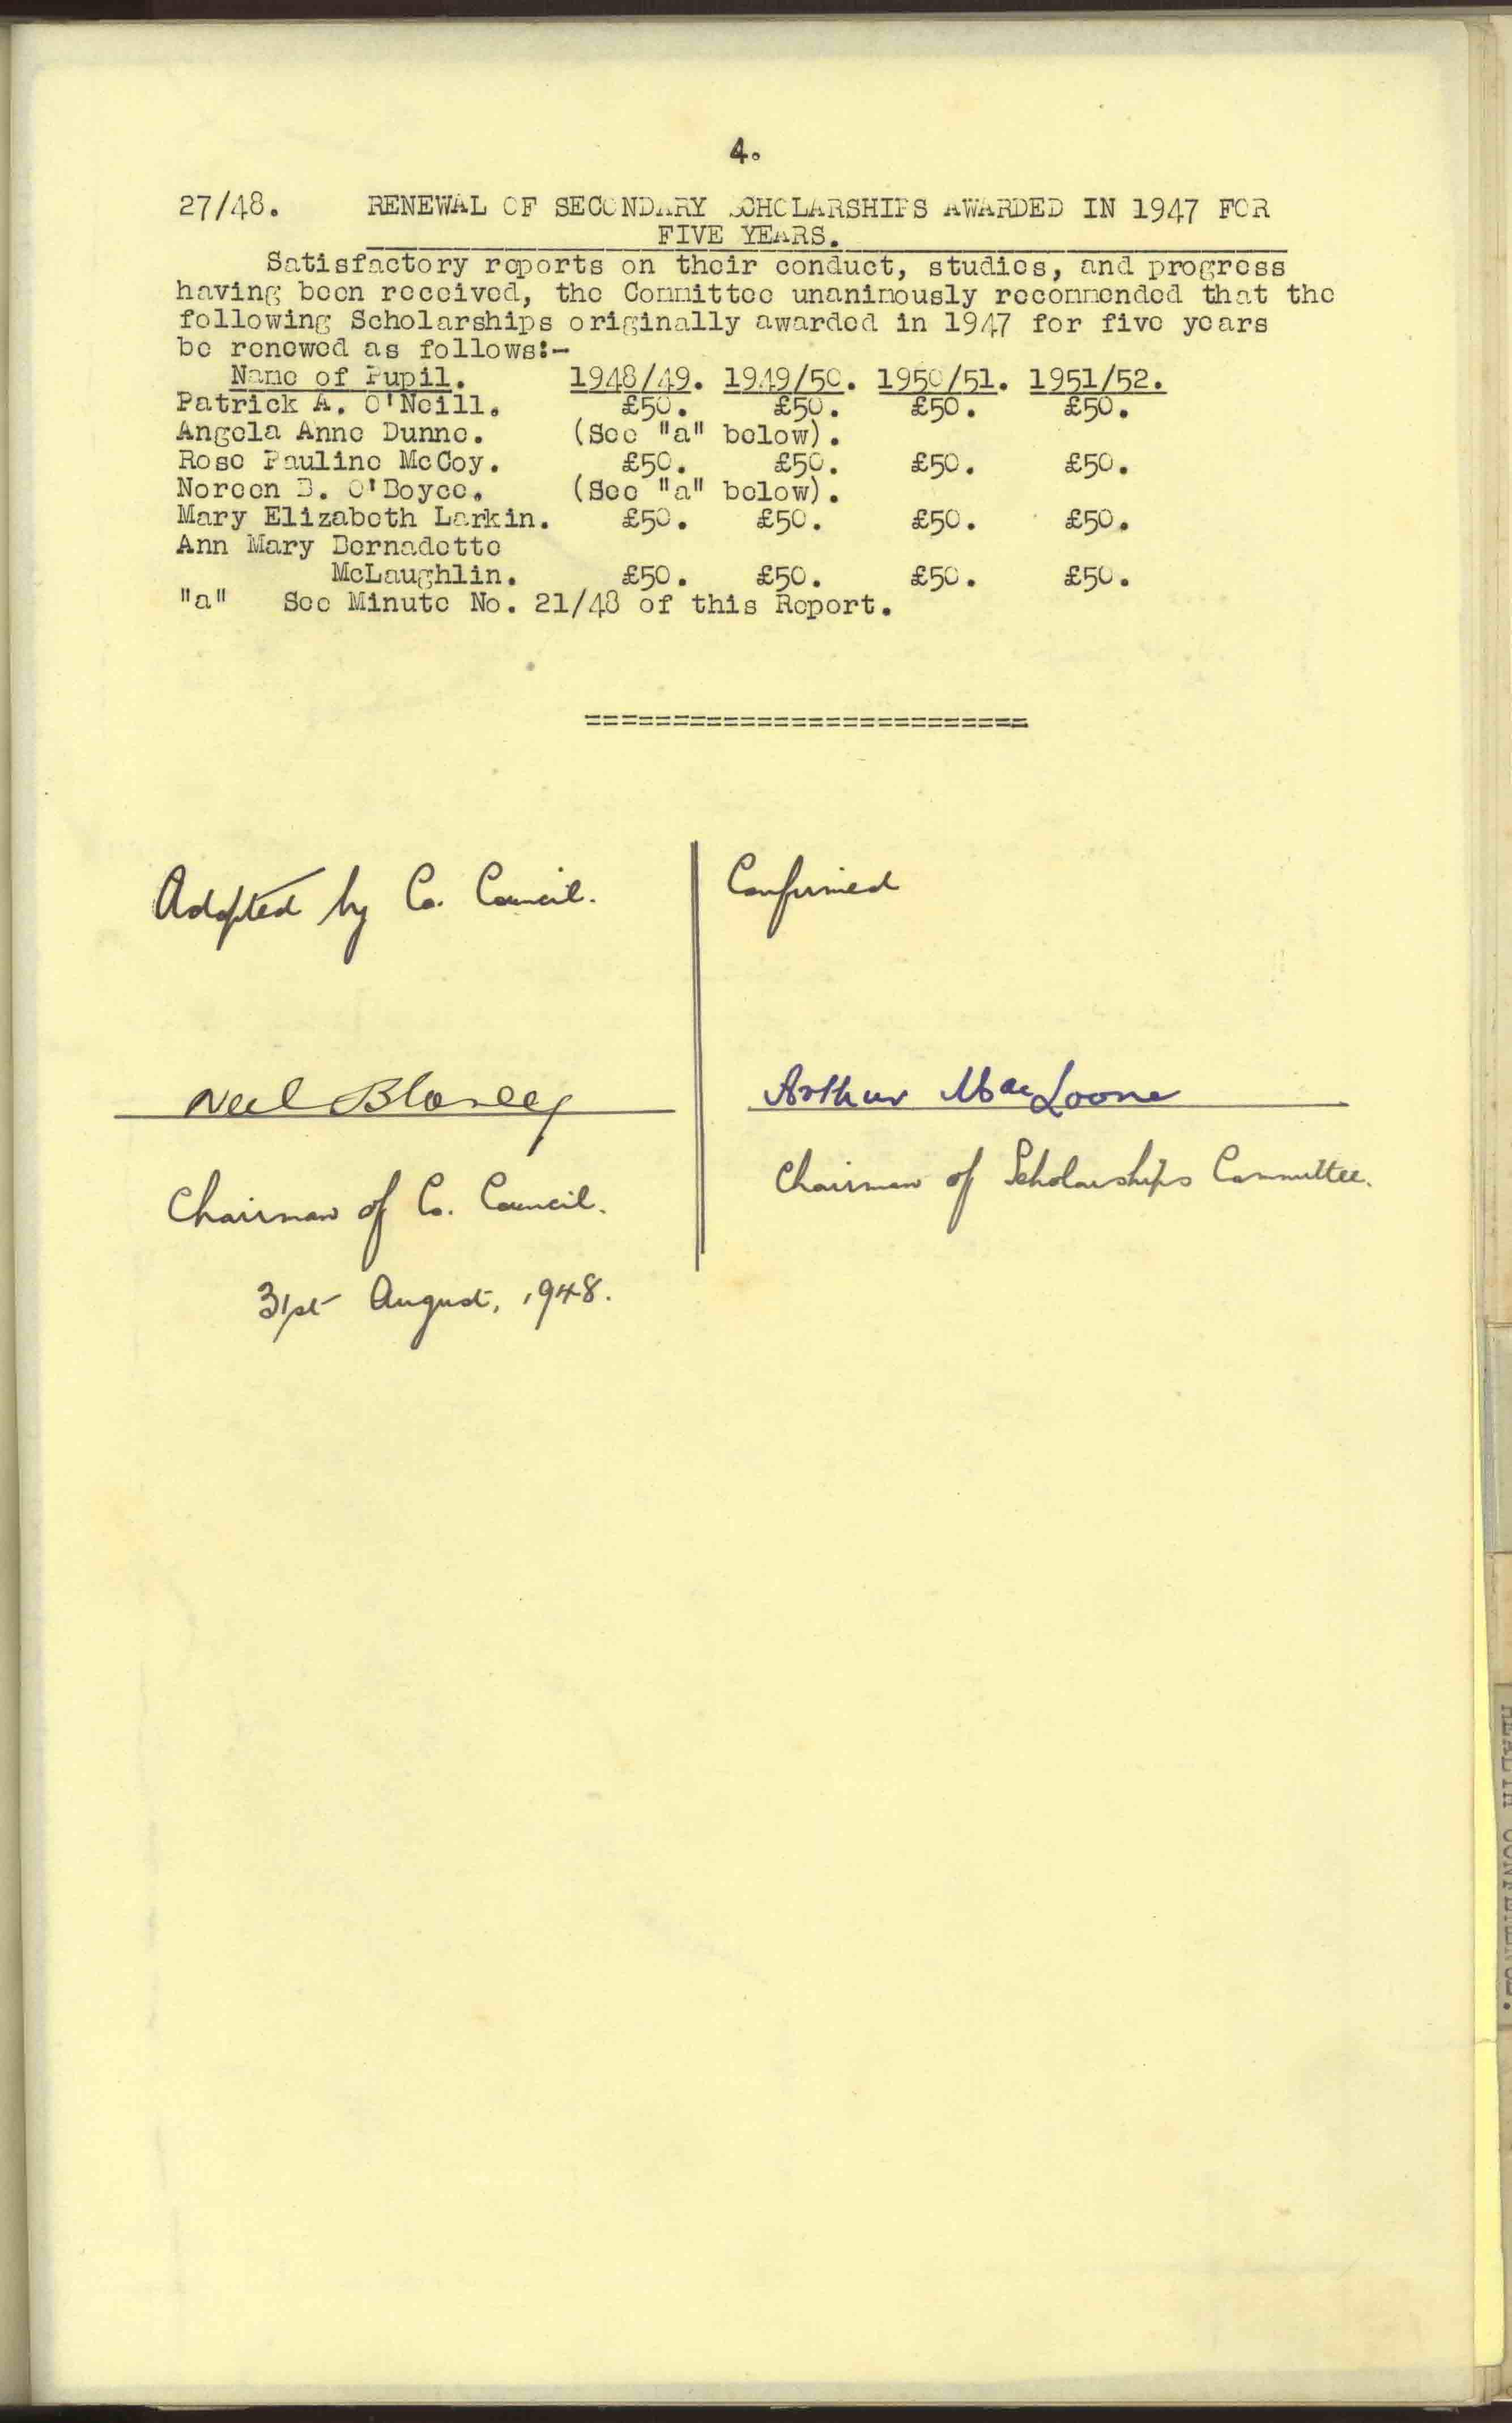 4.
27/48. RENEWAL OF SECONDARY SCHOLARSHIPS AWARDED IN 1947 FOR
FIVE YEARS.
Satisfactory reports on their conduct, studies, and progress
having been received, the Committee unanimously recommended that the
following Scholarships originally awarded in 1947 for five years
be renewed as follows:-
Name of Pupil. 1948/49. 1949/50. 1950/51. 1951/52.
Patrick A. O'Neill. £50. £50. £50. £50.
Angela Anne Dunne. (See "a" below).
Rose Pauline McCoy. £50. £50. £50. £50.
Noreen B. O'Boyce. (See "a" below).
Mary Elizabeth Larkin. £50. £50. £50. £50.
Ann Mary Bernadette
McLaughlin. £50. £50. £50. £50.
"a" See Minute No. 21/48 of this Report.
==========================
Adopted by Co. Council.
Neil Blaney
Chairman of Co. Council.
31st August, 1948.
Confirmed
Arthur MacLoone
Chairman of Scholarships Committee.
HEALTH CONFERENCE.